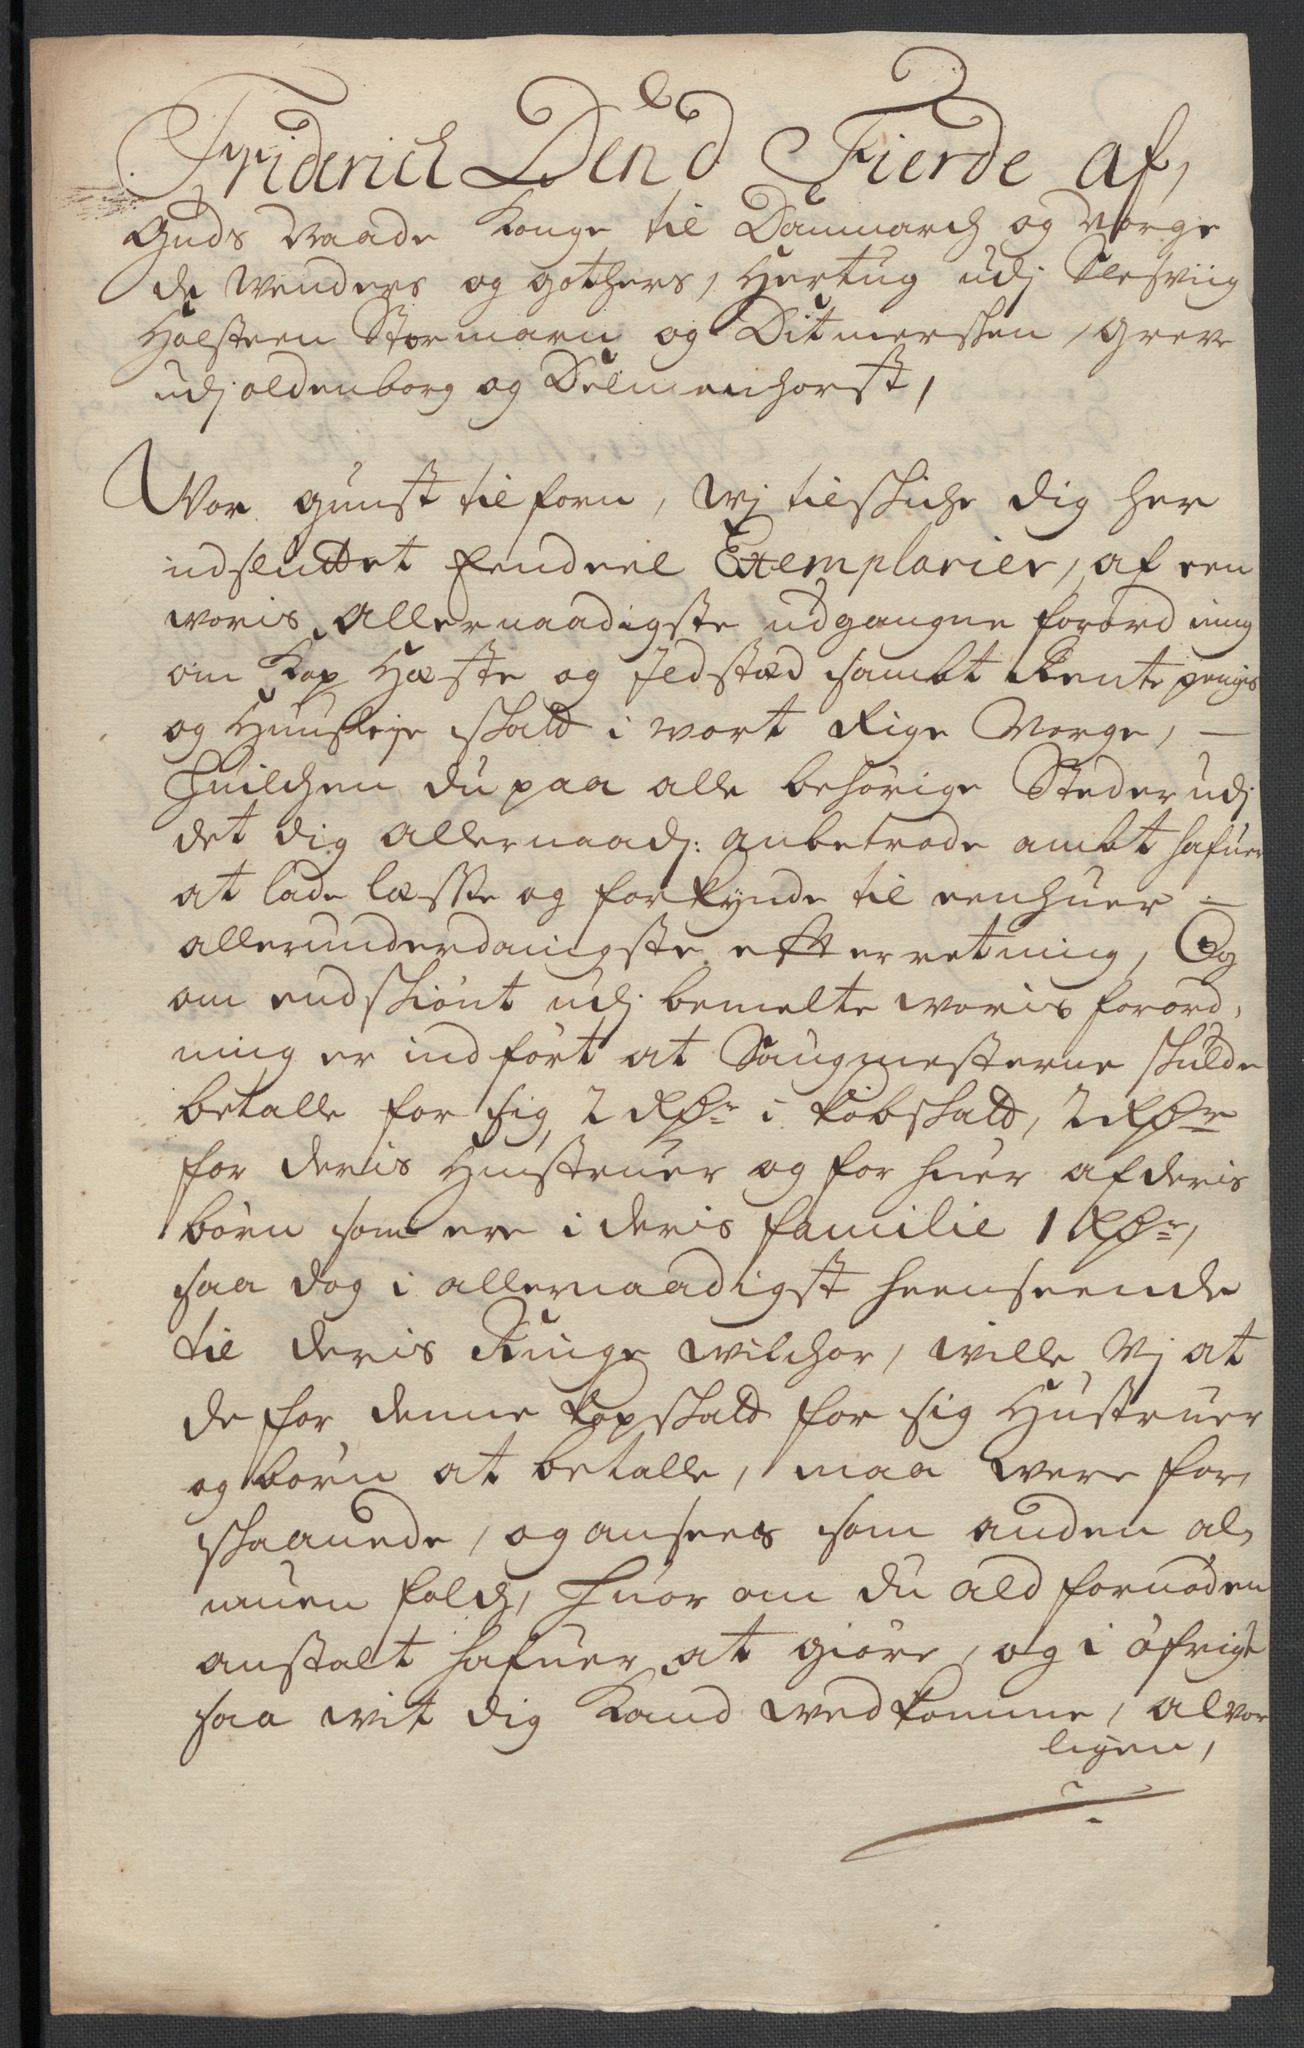 Friderich Dend Fierde af,
Guds Naade Konge til Danmarch og Norge
de Wenders og gothers, Hertug udj Slesviig
Holsteen Stormarn og Ditmersken, Greve
udj oldenborg og Delmenhorst,
Wor gunst tilforn, wj tilskiche dig her
indsluttet Eendeel Exemplarier, af een
woris allernaadigste udgangne forordning
om Kop Hæste og Ildstæd sambt Rente penges
og Huusleje skatt i wort Rige Norge, —
Huilchen du paa alle behörige Steder udj
det dig allernaadj: anbetrode ambt hafuer
at lade læsse og forkynde til eenhuer —
allerunderdanigste efterretning, Og
om endskiönt udj bemelte woris forord,
ning er indfört at Saugmesterne skulde
betalle for sig 2 Rdr i kobskatt, 2 Rdr
for deris Hustruer og for huer af deris
börn som ere i deris familie 1 Rdr,
saa dog i allernaadigst henseende
til deris Ringe wilchor, wille Vj at
de for denne kopskatt for sig Hustruer
og börn at betalle, maa were for,
skaanede, og ansees som anden al,
muen folch, huor om du ald fornöden
anstalt hafuer at giöre, og i öfrigt
saa wit dig Kand wedkomme, alvor
ligen,